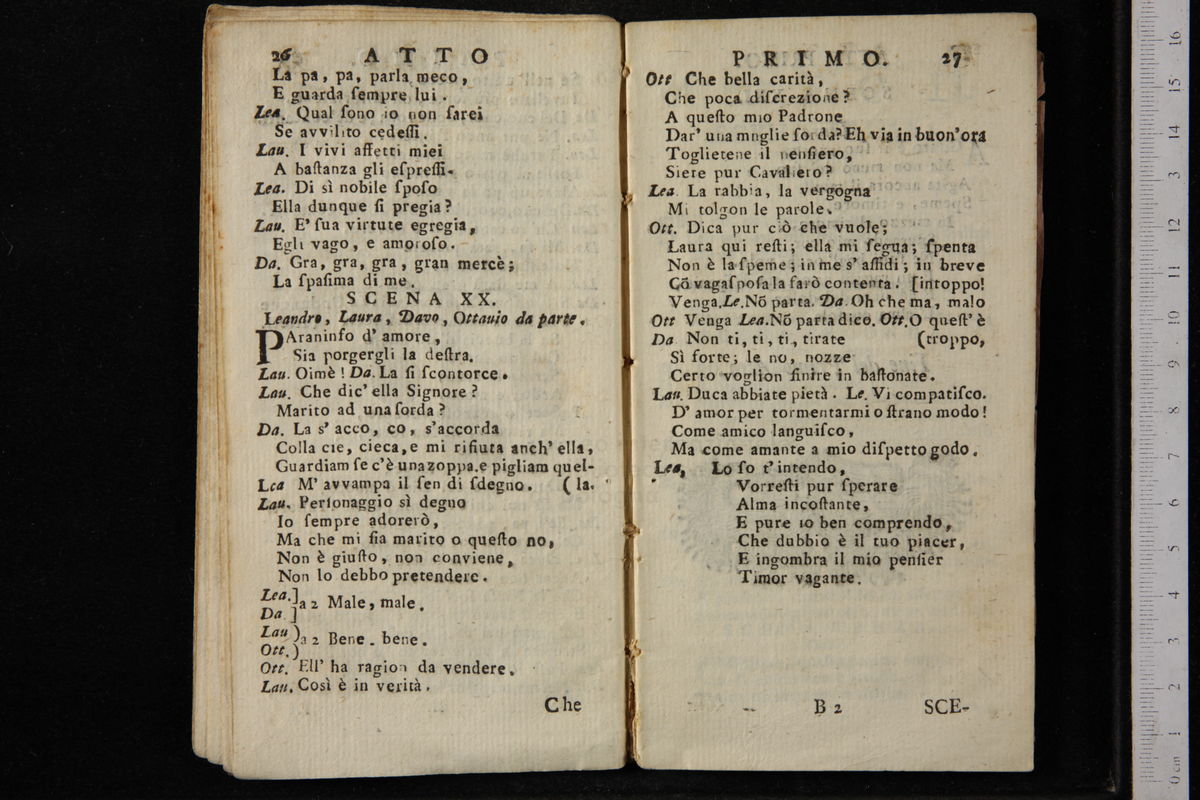 26 ATTO
La pa, pa, parla meco,
E guarda ſempre lui.
Lea. Qual ſono io non ſarei
Se avvilito cedeſſi.
Lau. I vivi affetti miei
A baſtanza gli eſpreſſi.
Lea. Di sì nobile ſpoſo
Ella dunque ſi pregia?
Lau. E' ſua virtute egregia,
Egli vago, e amoroſo.
Da. Gra, gra, gra, gran mercè;
La ſpaſima di me.
SCENA XX.
Leandro, Laura, Davo, Ottauio da parte.
PAraninfo d' amore,
Sia porgergli la deſtra.
Lau. Oimè! Da. La ſi ſcontorce.
Lau. Che dic' ella Signore?
Marito ad una ſorda?
Da. La s' acco, co, s'accorda
Colla cie, cieca, e mi rifiuta anch' ella,
Guardiam ſe c'è una zoppa.e pigliam quel-
Lea M' avvampa il ſen di ſdegno. (la.
Lau. Perſonaggio sì degno
Io ſempre adorerò,
Ma che mi ſia marito o queſto no,
Non è giuſto, non conviene,
Non lo debbo pretendere.
Lea.]
a 2 Male, male.
Da ]
Lau )
a 2 Bene. bene.
Ott.)
Ott. Ell' ha ragion da vendere.
Lau. Così è in verità.
Che
PRIMO. 27
Ott Che bella carità,
Che poca diſcrezione?
A queſto mio Padrone
Dar' una moglie ſorda? Eh via in buon'ora
Toglietene il penſiero,
Siete pur Cavaliero?
Lea. La rabbia, la vergogna
Mi tolgon le parole.
Ott. Dica pur ciò che vuole;
Laura qui reſti; ella mi ſegua; ſpenta
Non è la ſpeme; in me s' affidi; in breve
Cō vaga ſpoſa la farò contenta. [intoppo!
Venga.Le.Nō parta. Da. Oh che ma, malo
Ott Venga Lea.Nō parta dico. Ott.O queſt' è
Da Non ti, ti, ti, tirate (troppo,
Sì forte; le no, nozze
Certo voglion finire in baſtonate.
Lau. Duca abbiate pietà. Le. Vi compatiſco.
D' amor per tormentarmi o ſtrano modo!
Come amico languiſco,
Ma come amante a mio diſpetto godo.
Lea, Lo ſo t' intendo,
Vorreſti pur ſperare
Alma incoſtante,
E pure io ben comprendo,
Che dubbio è il tuo piacer,
E ingombra il mio penſier
Timor vagante.
B 2 SCE-
0 cm 1 2 3 4 5 6 7 8 9 10 11 12 13 14 15 16